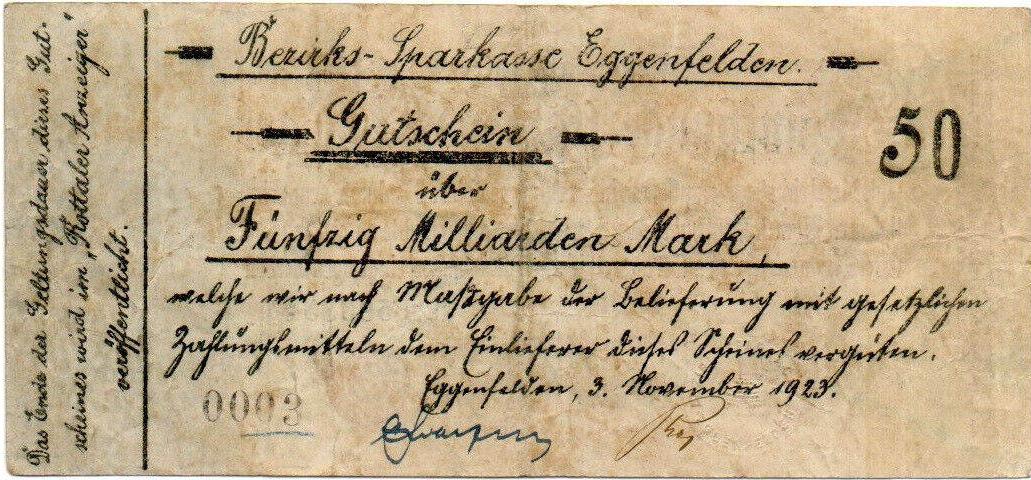 Bezirks-Sparkasse Eggenfelden.
Gutschein
50
über
Fünfzig Milliarden Mark,
welche wir nach Maßgabe der Belieferung mit gesetzlichen
Zahlungsmitteln dem Einlieferer dieses Scheines vergüten.
Eggenfelden, 3. November 1923.
0003
Das Ende der Geltungsdauer dieses Gut-
scheines wird im „Rottaler Anzeiger"
veröffentlicht.